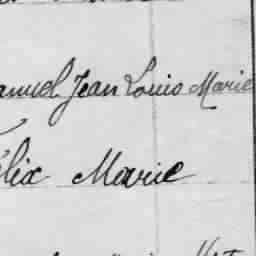 anuel Jean Louis Marie
élix Marie